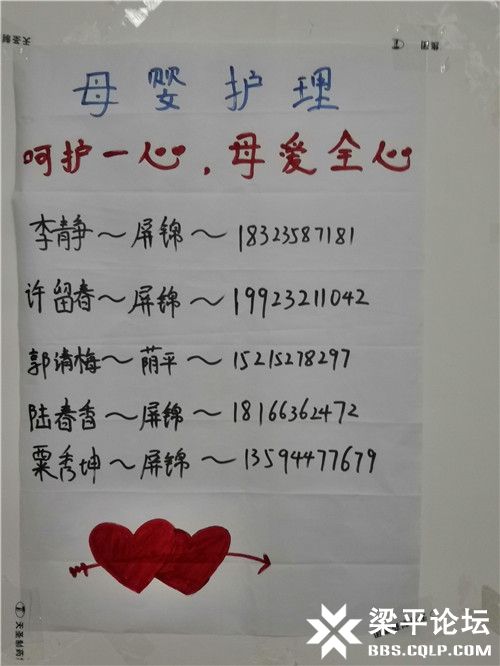 天圣制
集团
母婴护理
呵护一心，母爱全心
李静～屏锦～18323587181
许留春～屏锦～19923211042
郭清梅～荫平～15215278297
陆春香～屏锦～18166362472
粟秀坤～屏锦～13594477679
天圣制药
梁平论坛
BBS.CQLP.COM